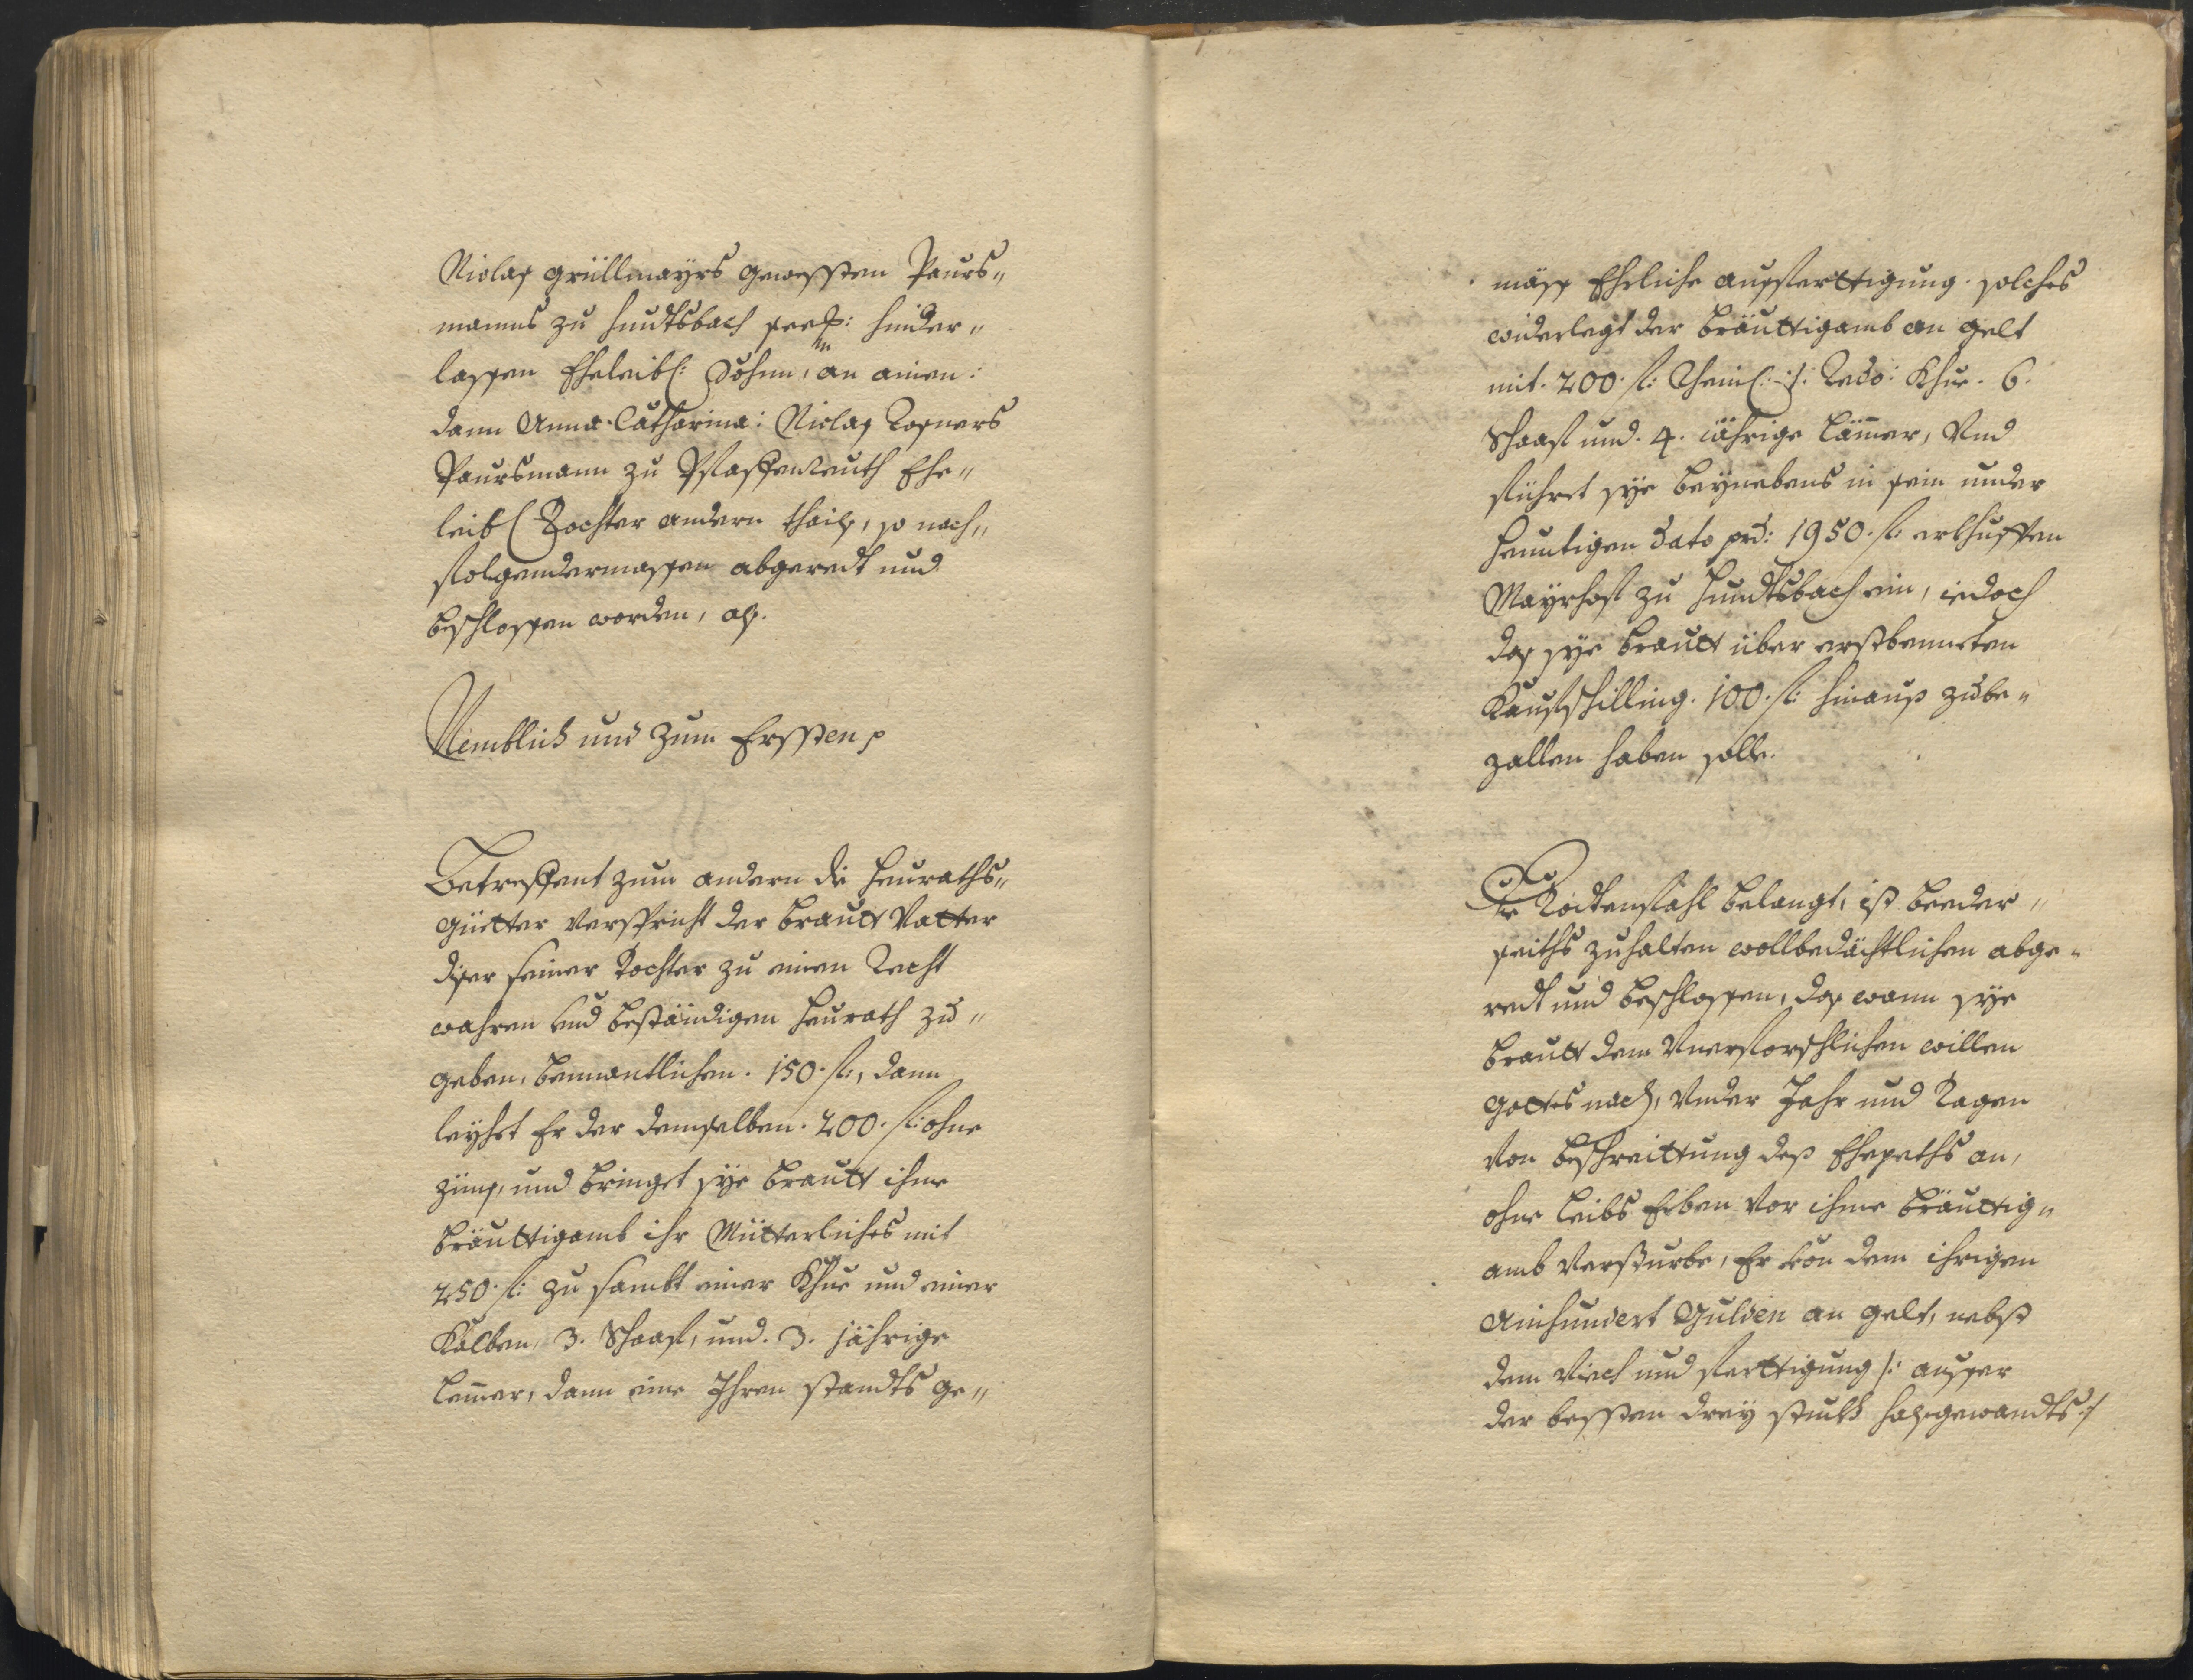 Niclaß Grüllmayrs gewessten Paurs„
manns zu Hundtsbach seel: hinder„
lassen Eheleibl: Söhnn, an ainen:
dann Anna Catharina: Niclaß Rosners
Paursmann zu Pfaffenreuth Ehe„
leibl Tochter andern thailß, so nach„
folgendermassen abgeredt und
beschlossen worden, alß.
Nemblich und zum Erssten p
Betreffent zum andern die Heuraths„
güetter verspricht der Brautt Vatter
diser seiner Tochter zu einen Recht
wahren und beständigen Heurath zu„
geben, benantlichen. 150. fl:, dann
leyhet Er der demselben. 200. fl: ohne
Zünß, und bringet sye Brautt ihme
Bräuttigamb ihr Mütterliches mit
250. fl: zu sambt einer Khue und einer
Kalben, 3. Schaaf, und. 3. jährige
Lemer, dann eine Ihren standts ge„
mäss Eheliche aussferttigung. solches
widerlegt der Bräuttigamb an gelt
mit. 200. fl: Rheinl: :/: Khue. 6.
Schaaf und. 4. iährige Lämer, Und
führet sye beynebens in sein under
heuntigen dato prd: 1950. fl: erkhufften
Mayrhof zu Hundtsbach ein, iedoch
daß sye Brautt über erstbennten
Kaufschilling. 100. fl: hinauß zube„
zallen haben solle.
Die Todtenfahl belangt, ist beeder„
seiths zuhalten wollbedächtlichen abge„
redt und beschlossen, daß wann sye
Brautt dem Unerforschlichen willen
Gottes nach, Under Jahr und Tagen
von beschreittung deß Ehepeths an,
ohne Leibs Erben vor ihme Bräuttig„
amb versturbe, Er von dem ihrigen
Ainhundert Gulden an gelt, nebst
dem Viech und ferttigung /: ausser
der bessten drey stukh halßgewandts :/